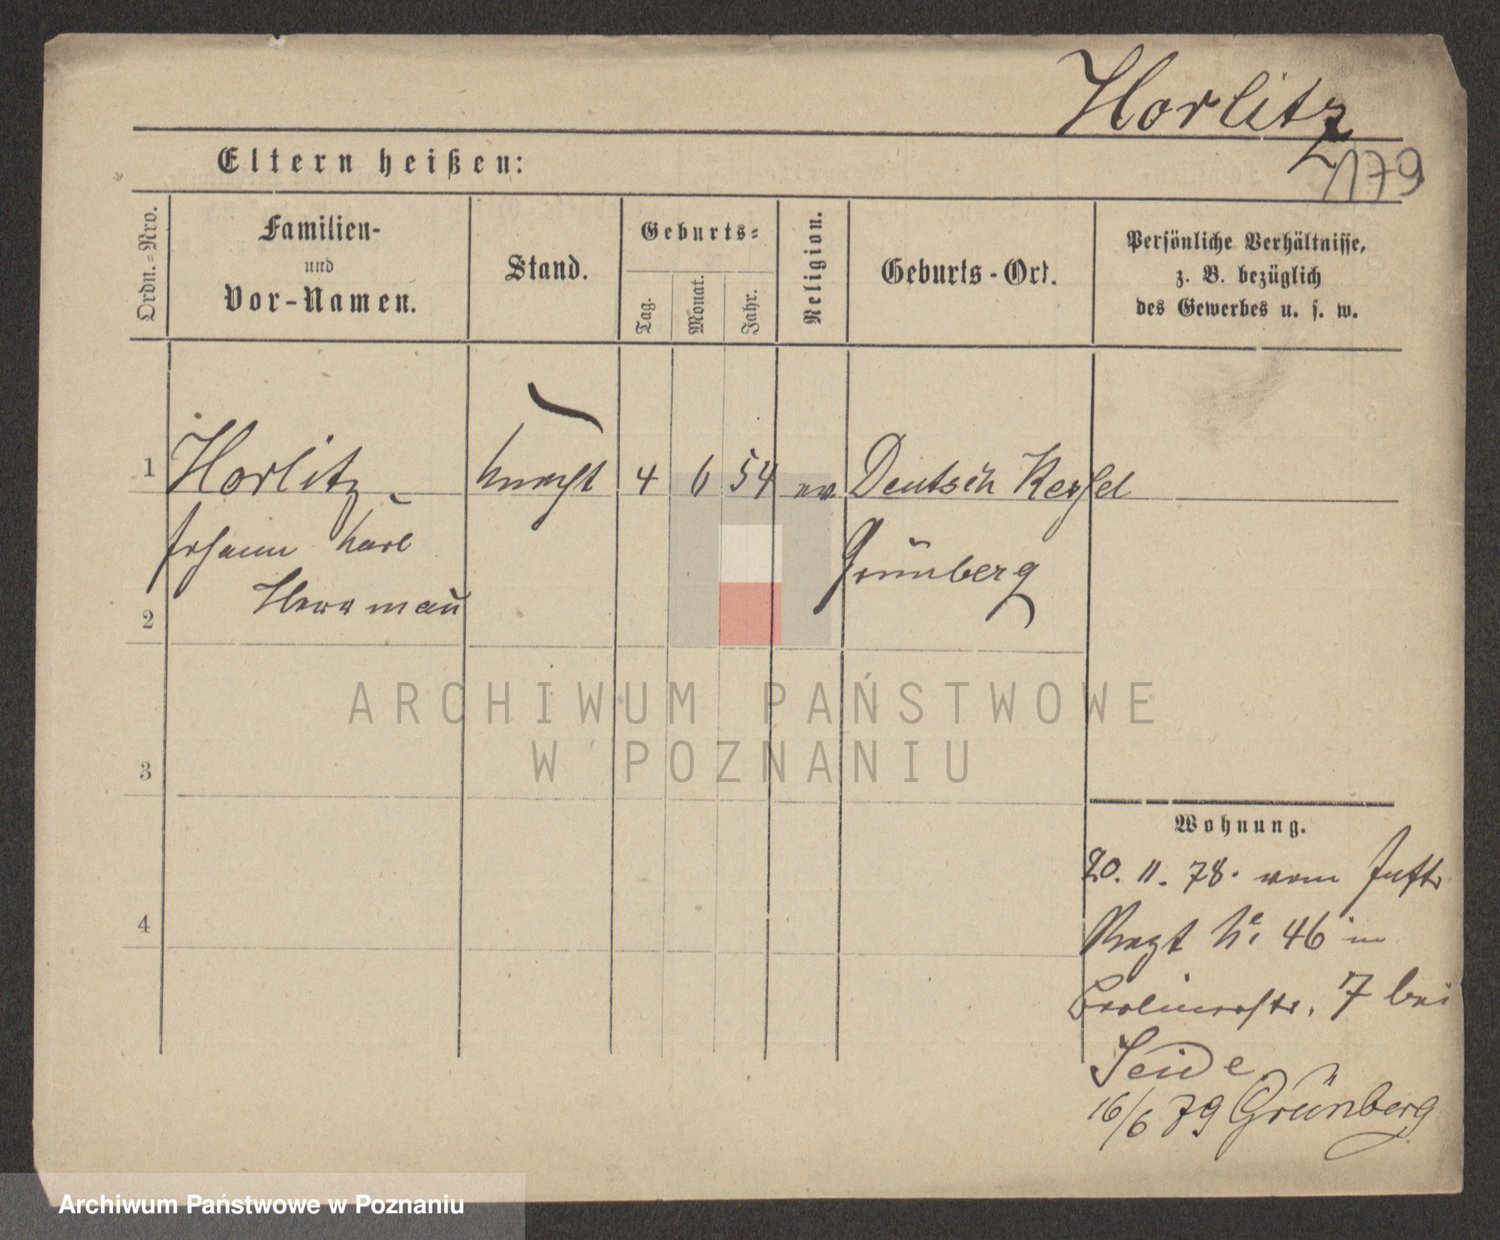 Horlitz
Z179
Eltern heißen:
Ordn.=Nro.
Familien-
und
Vor-Namen.
Stand.
Geburts=
Tag.
Monat.
Jahr.
Religion.
Geburts-Ort.
Persönliche Verhältnisse,
z. B. bezüglich
des Gewerbes u. s. w.
1 Horlitz Knecht 4 6 54 ev Deutsch Kessel
Johann Karl Grünberg
Herrmañ
2
ARCHIWUM PAŃSTWOWE
W POZNANIU
3
Wohnung.
20. 11. 78. vom Inftr
4
Regt No. 46 in
Berlinerstr. 7 bei
Seide
16/6 79 Grünberg
Archiwum Państwowe w Poznaniu